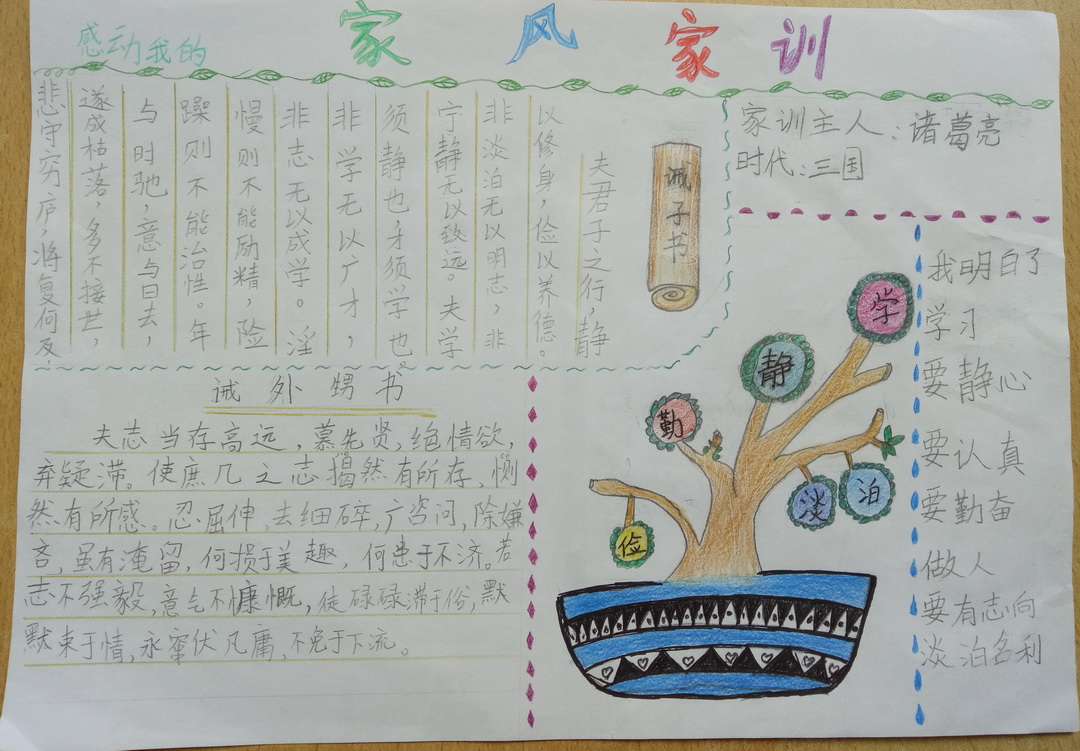 感动我的
家风家训
家训主人：诸葛亮
时代：三国
诫子书
夫君子之行，静
以修身，俭以养德。
非淡泊无以明志，非
宁静无以致远。夫学
须静也才须学也
非学无以广才，
非志无以成学。淫
慢则不能励精，险
躁则不能治性。年
与时驰，意与日去，
遂成枯落，多不接世，
悲守穷庐，将复何及
诫外甥书
夫志当存高远，慕先贤，绝情欲，
弃疑滞。使庶几之志揭然有所存，恻
然有所感。忍屈伸，去细碎，广咨问，除嫌
吝，虽有淹留，何损于美趣，何患于不济。若
志不强毅，意气不慷慨，徒碌碌滞于俗，默
默束于情，永窜伏凡庸，不免于下流。
学
静
勤
淡
泊
俭
我明白了
学习
要静心
要认真
要勤奋
做人
要有志向
淡泊名利